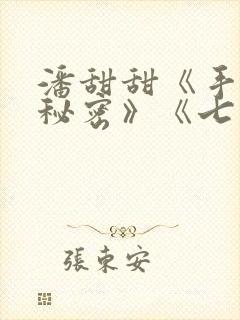 潘甜甜《手
秘密》《七
張東安